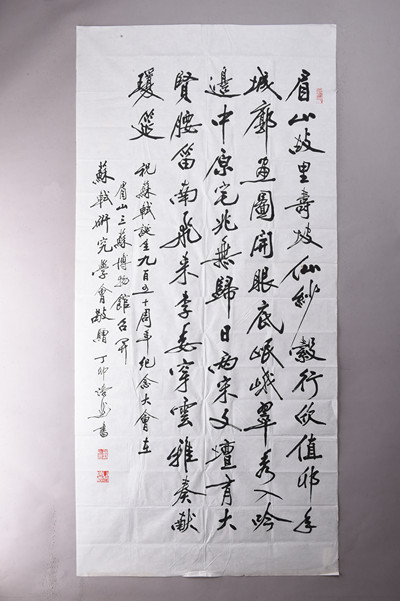 眉山故里壽坡仙紗縠行欣值年
城廓畫圖開眼底岷峨翠秀入吟
邊中原宅兆無歸日兩宋文壇有大
賢腰笛南飛來李委穿雲雅奏獻
瓊筵
祝蘇軾誕生九百五十周年紀念大會在
眉山三蘇博物館召開
蘇軾研究學會敬贈 丁卯 書